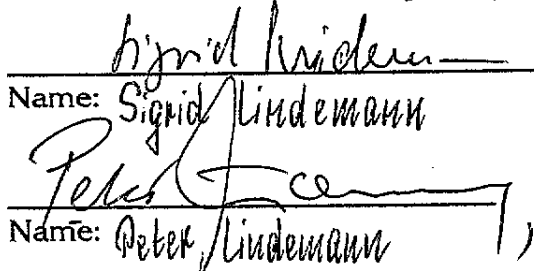 Sigrid Lindemann
Name: Sigrid Lindemann
Peter
Name: Peter Lindemann